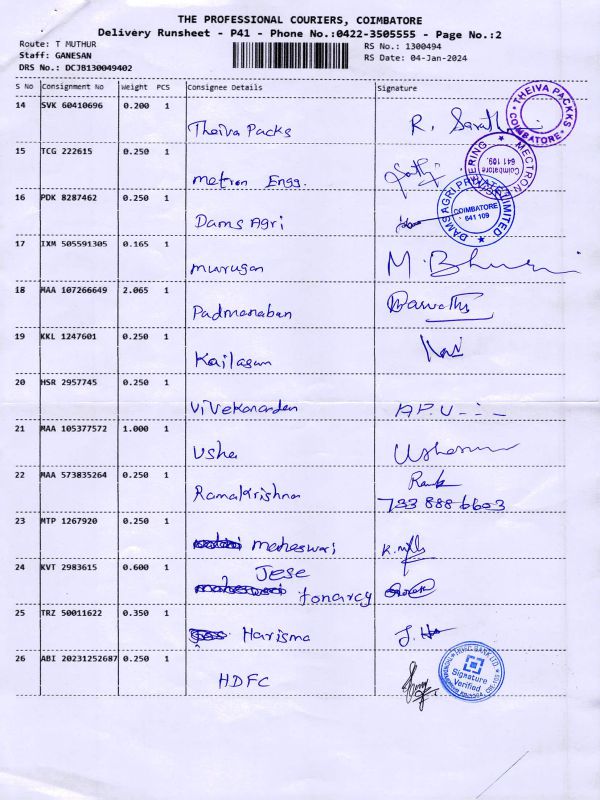 THE PROFESSIONAL COURIERS, COIMBATORE
Delivery Runsheet - P41 - Phone No.:0422-3505555 - Page No.:2
Route: T MUTHUR
RS No.: 1300494
Staff: GANESAN
RS Date: 04-Jan-2024
DRS No.: DCJB130049402
S No Consignment No Weight PCS Consignee Details Signature
14 SVK 60410696 0.200 1
Theiva Packs R. Sarath
THEIVA PACKKS COIMBATORE
15 TCG 222615 0.250 1
Metron Engg.
MECTRON Coimbatore 641 109.
16 PDK 8287462 0.250 1
Dams Agri
DAMS AGRI PRIVATE LIMITED COIMBATORE 641 109
17 IXM 505591305 0.165 1
Murugan
18 MAA 107266649 2.065 1
Padmanaban
19 KKL 1247601 0.250 1
Kailasam
20 HSR 2957745 0.250 1
Vivekananden
21 MAA 105377572 1.000 1
Usha
22 MAA 573835264 0.250 1
Ramakrishna
733 888 6603
23 MTP 1267920 0.250 1
maheswari
24 KVT 2983615 0.600 1
Jese
25 TRZ 50011622 0.350 1
Harisma
26 ABI 20231252687 0.250 1
HDFC
Signature Verified